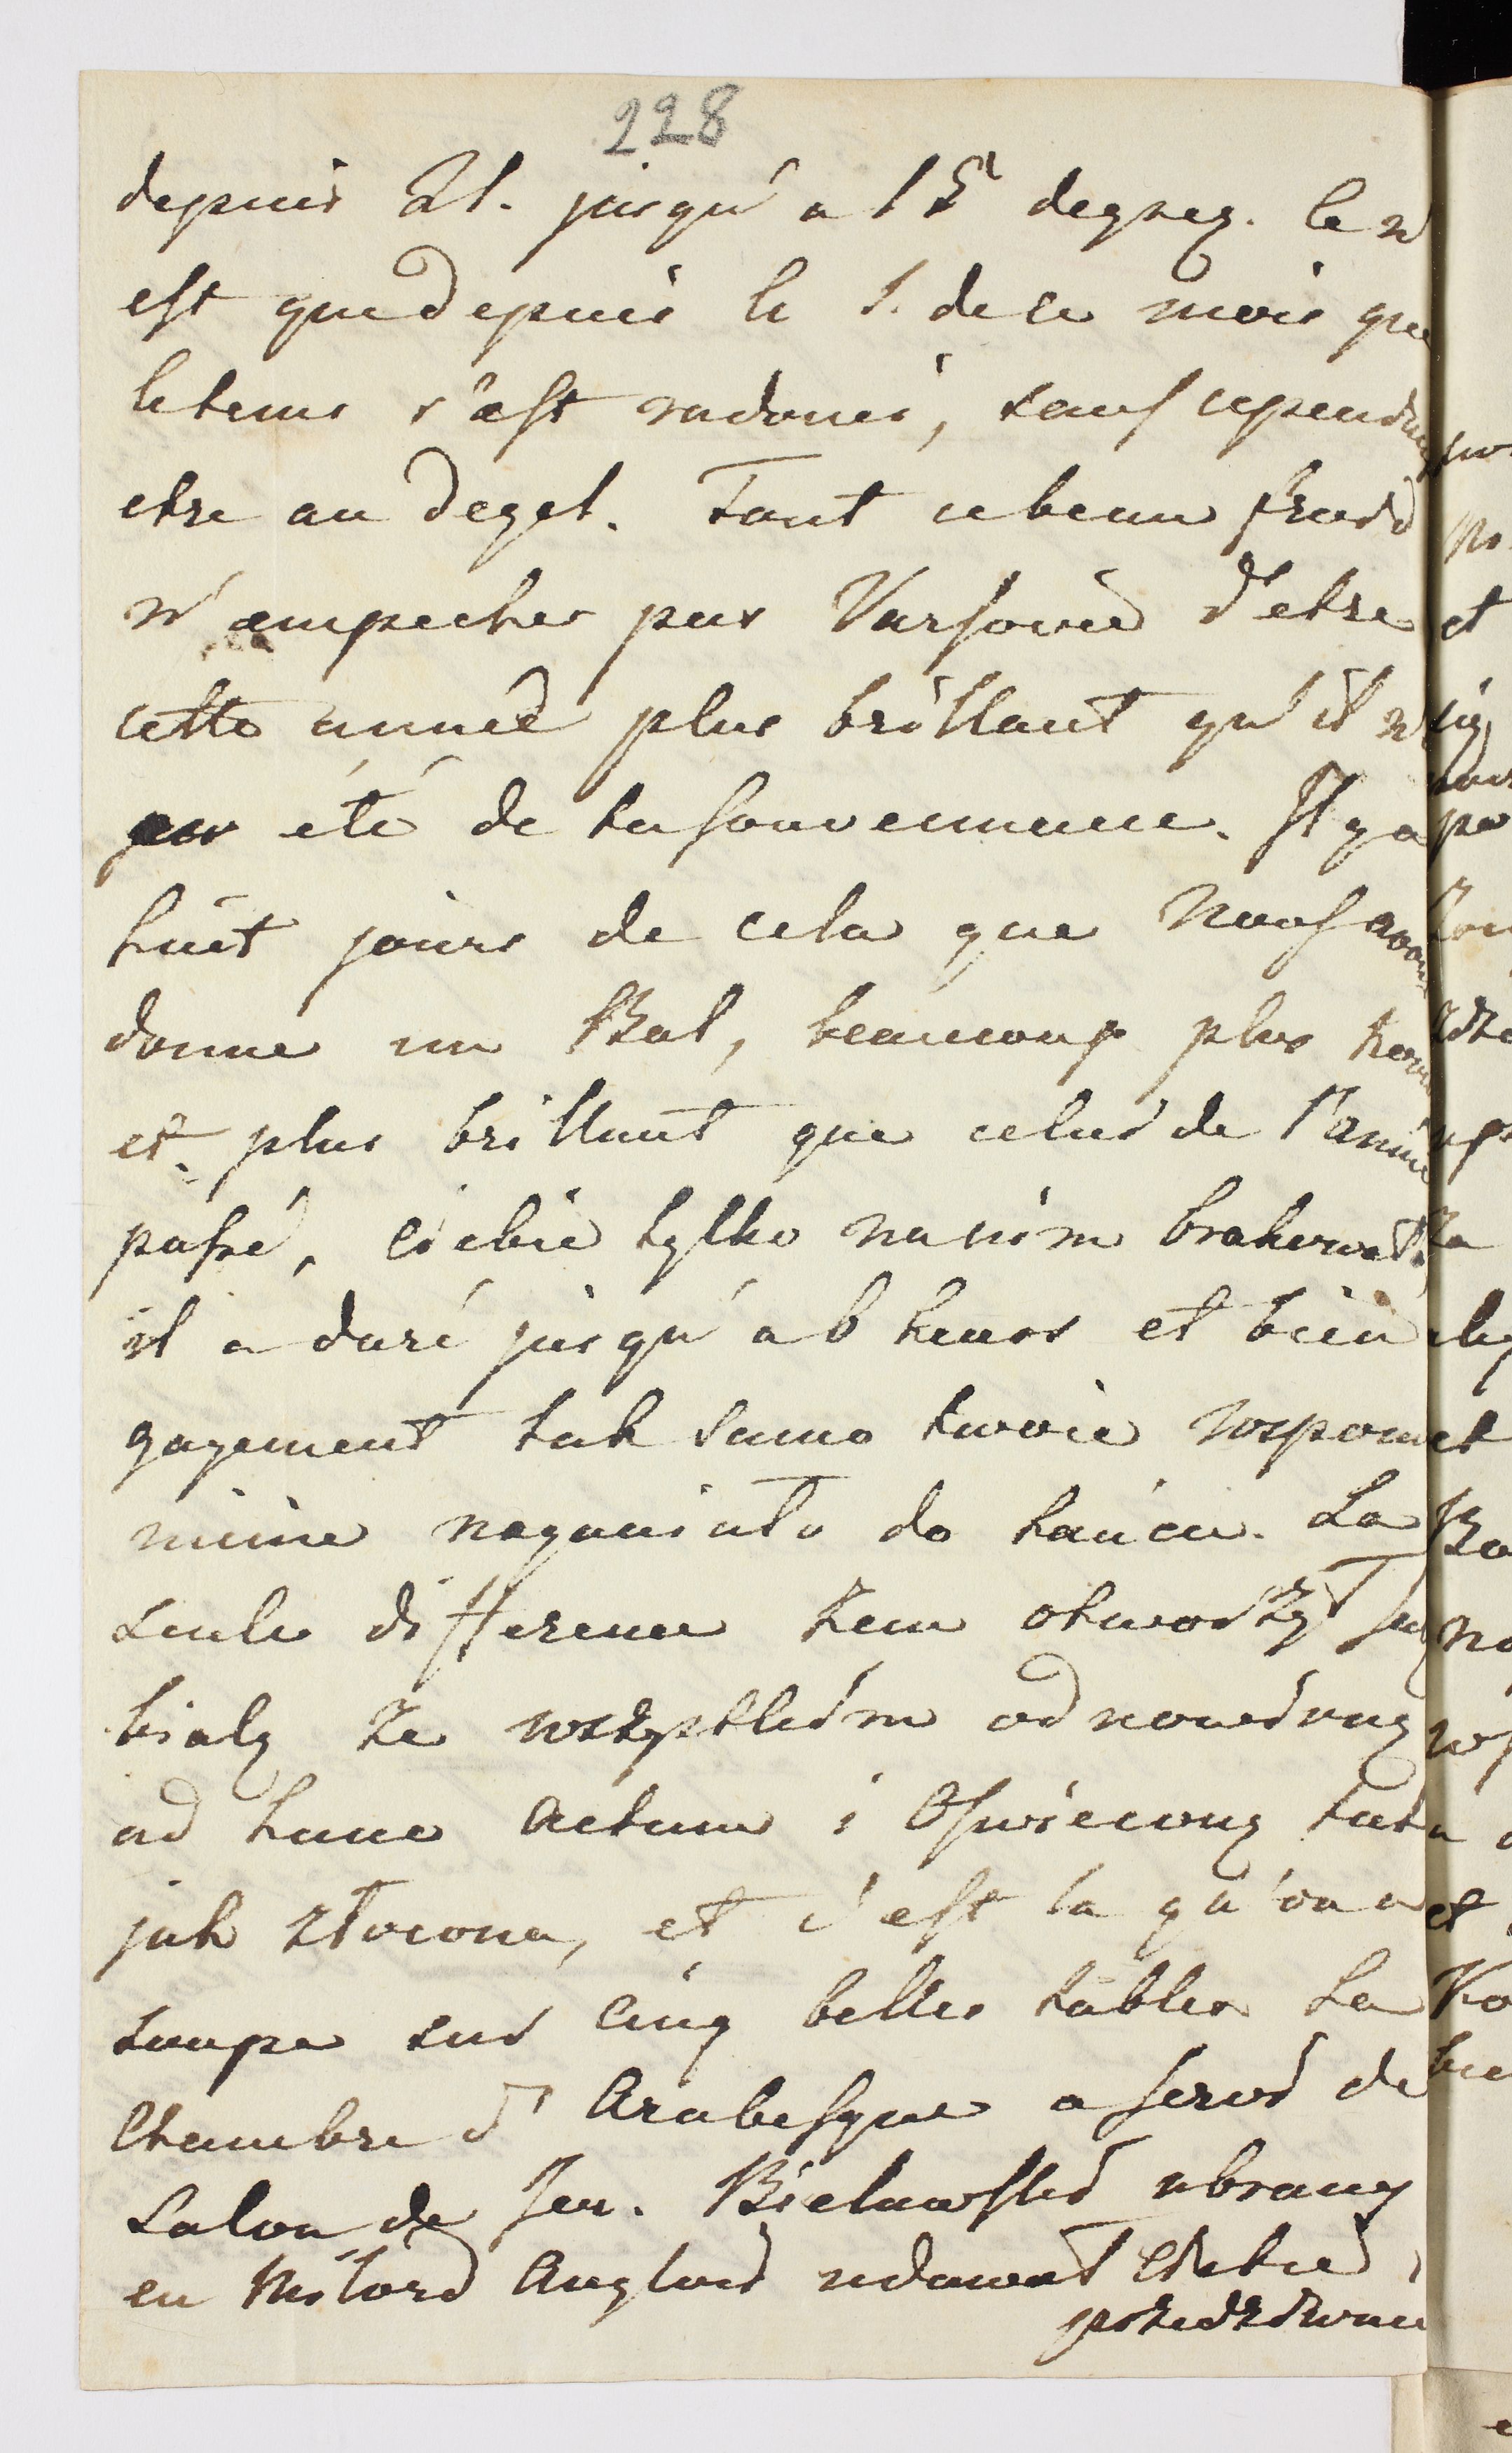 228
depuis 21. jusqu'a 15 degrez. Ce n'
est que depuis le 1. de ce mois que
le tems s'est radouci, sans cependant
etre au degel. Tout ce beau froid
n'empeche pas Varsovie d'etre
cette année plus brillant qu'il n'
été de ta souvennence. Il y a
huit jours de cela que nous avons
donne un Bal, beaucoup plus
et plus brillant que celui de l'année
passé, Ciebie tylko na nim brakowało
il a duré jusqu'a 6 heurs et bien
gayement tak samo twoie wspom
nienie naganiało do tańcu. La
seule difference żem otworzył Salę
białą ze wszystkim odnowioną
ad hunc actum i Oswieconą tak
jak złocona, et c'est la qu'on a
soupe sur Cinq belles tables La
Chambre d'Arabesque a servi de
Salon de Jeu. Bielawski ubrany
en Milord Anglois udawał